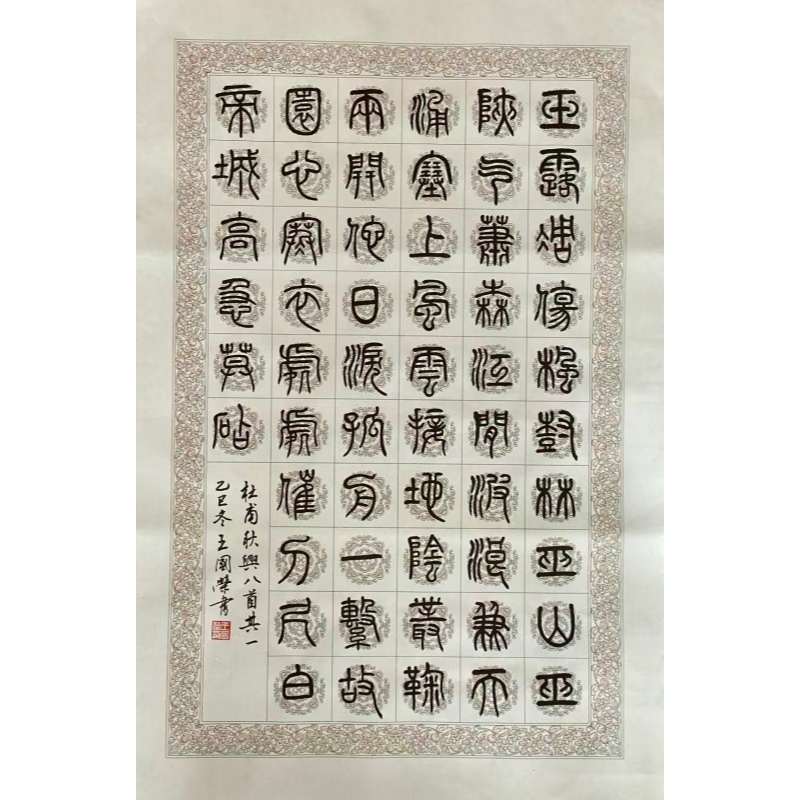 玉露凋傷楓尌林巫山巫
陜气蕭森江間波浪兼天
涌塞上風雲接地陰叢鞠
兩開他日淚孤舟一繫故
園心寒衣處處催刀尺白
帝城高急莫砧
杜甫秋興八首其一
乙巳冬王國榮書